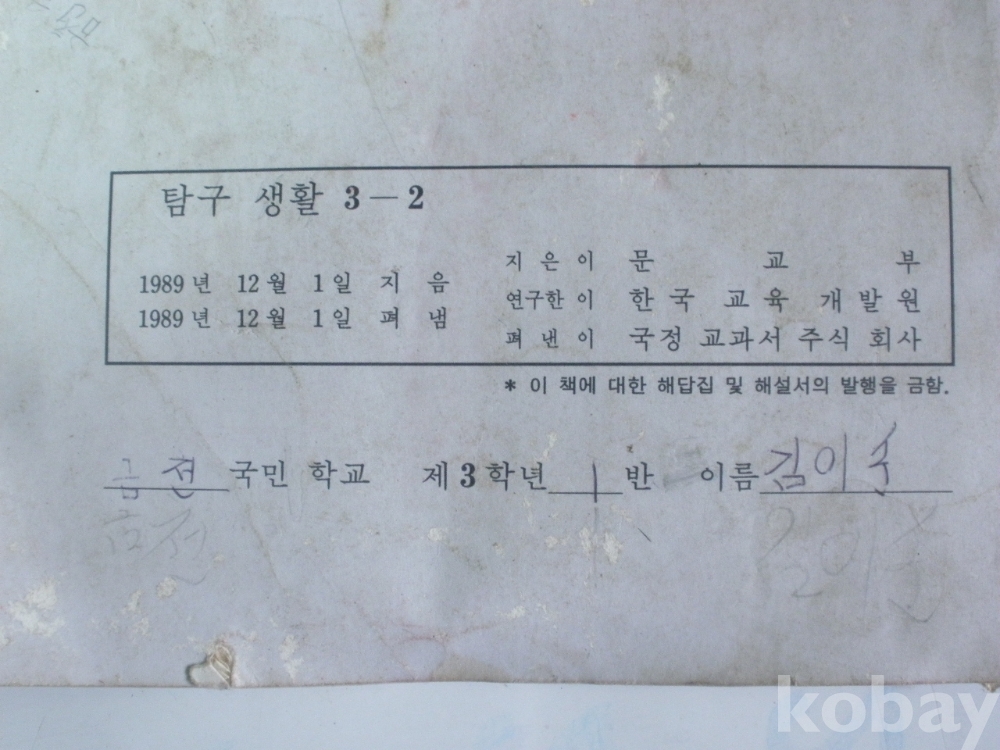 탐구 생활 3—2
1989년 12월 1일 지음
1989년 12월 1일 펴냄
지은이 문교부
연구한이 한국 교육 개발원
펴낸이 국정 교과서 주식 회사
* 이 책에 대한 해답집 및 해설서의 발행을 금함.
금전 국민 학교 제3학년 1반 이름 김이수
금전
kobay